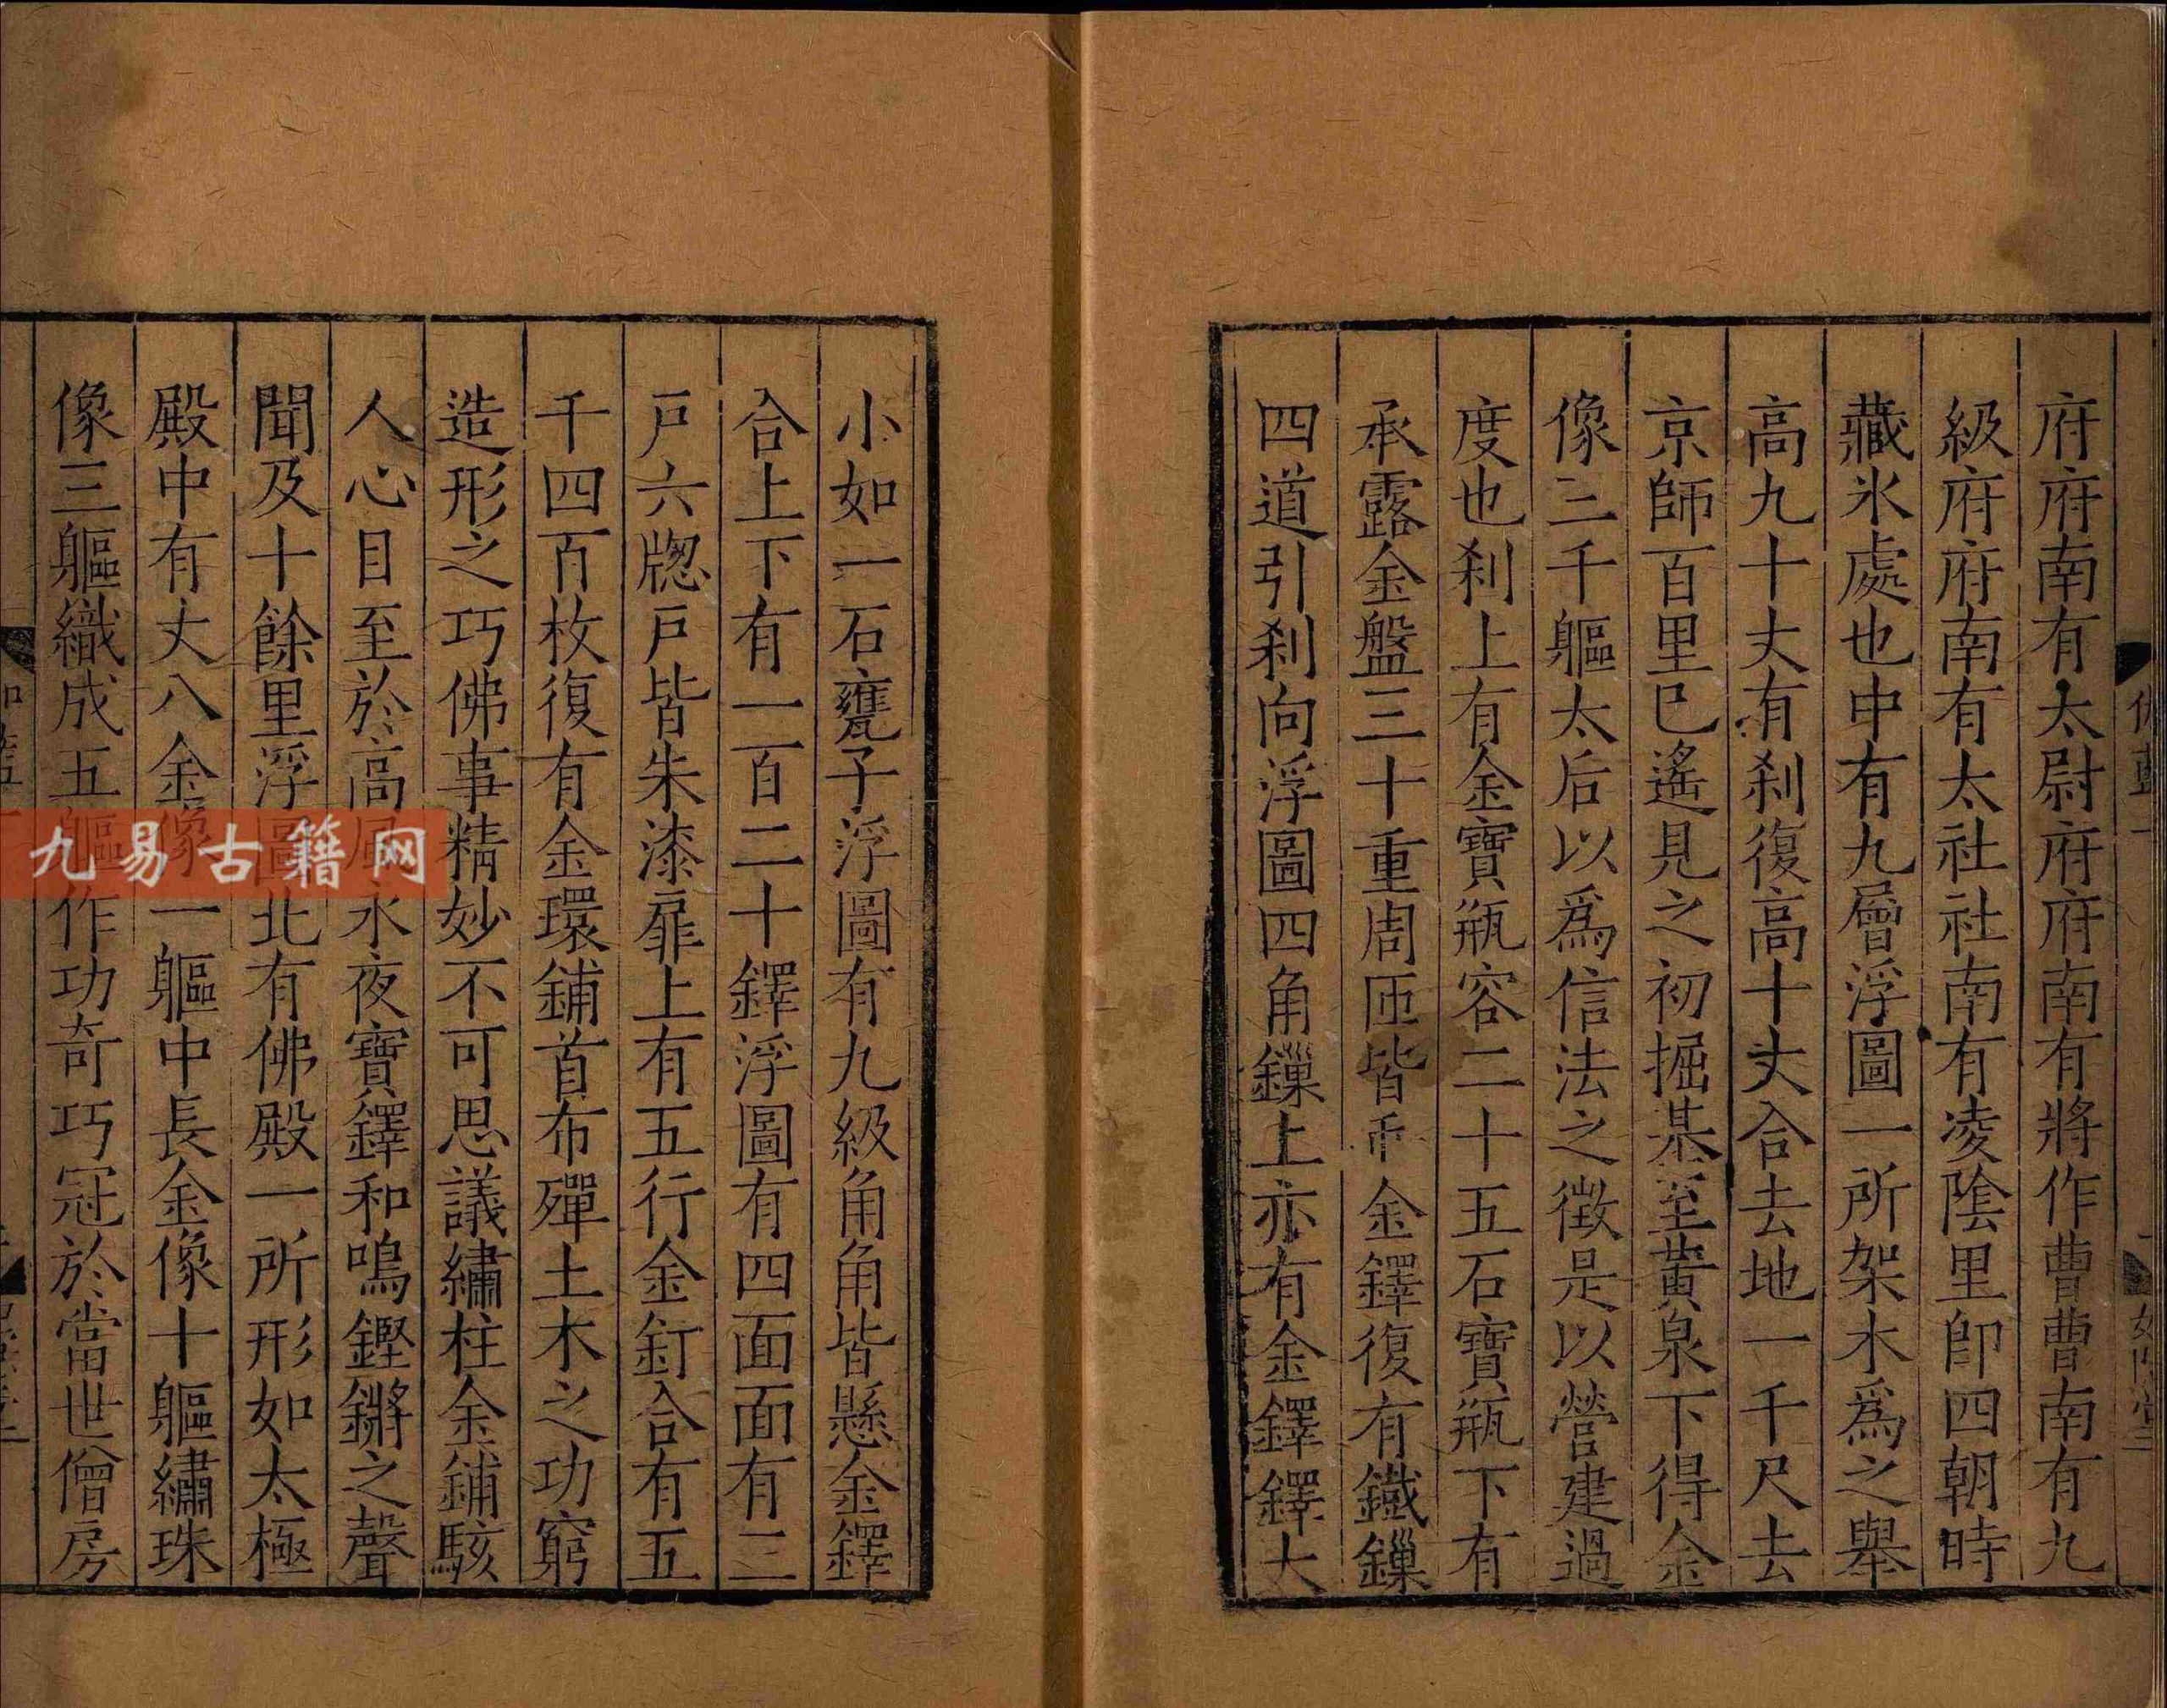 府府南有太尉府府南有將作曹曹南有九
級府府南有太社社南有凌陰里即四朝時
藏氷處也中有九層浮圖一所架木爲之舉
高九十丈有刹復高十丈合去地一千尺去
京師百里已遙見之初掘基至黃泉下得金
像三千軀太后以爲信法之徵是以營建過
度也刹上有金寶瓶容二十五石寶瓶下有
承露金盤三十重周匝皆金鐸復有鐵鏁
四道引刹向浮圖四角鏁上亦有金鐸鐸大
小如一石甕子浮圖有九級角角皆懸金鐸
合上下有一百二十鐸浮圖有四面面有三
戶六牎戶皆朱漆扉上有五行金釘合有五
千四百枚復有金環鋪首布殫土木之功窮
造形之巧佛事精妙不可思議繡柱金鋪駭
人心目至於高風永夜寶鐸和鳴鏗鏘之聲
聞及十餘里浮圖北有佛殿一所形如太極
殿中有丈八金像一軀中長金像十軀繡珠
像三軀織成五軀作功奇巧冠於當世僧房
九易古籍网